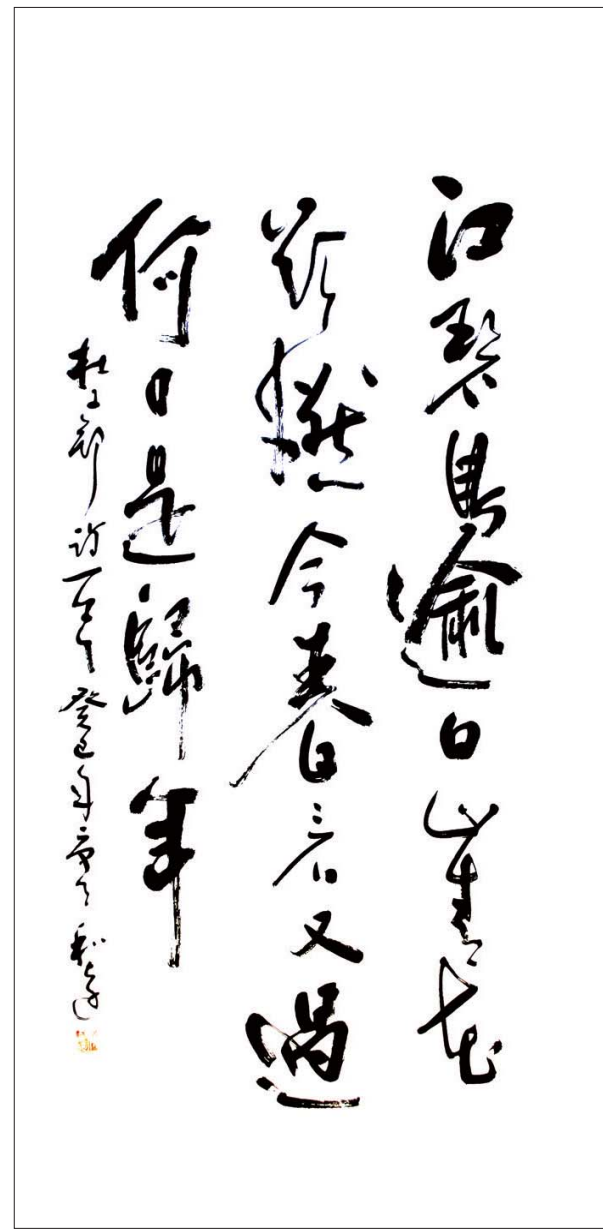 江碧鳥逾白山青花
欲燃今春看又過
何日是歸年
杜工部詩一首癸巳年